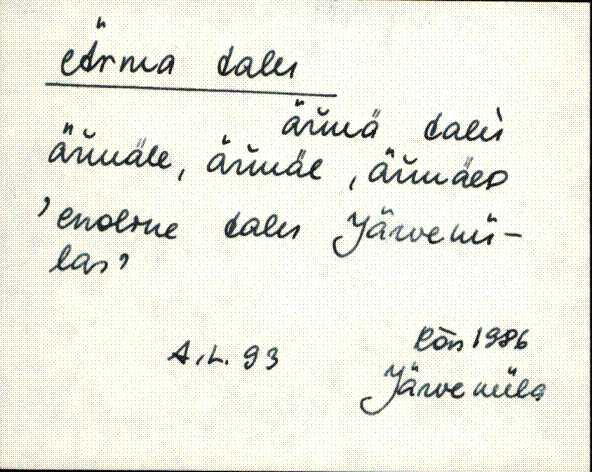 Ärma talu
ärmä talu
ärmäle, ärmäl, ärmäld
'endine talu Järvekü-
las'
A.L. 93 Rõu 1986
Järveküla